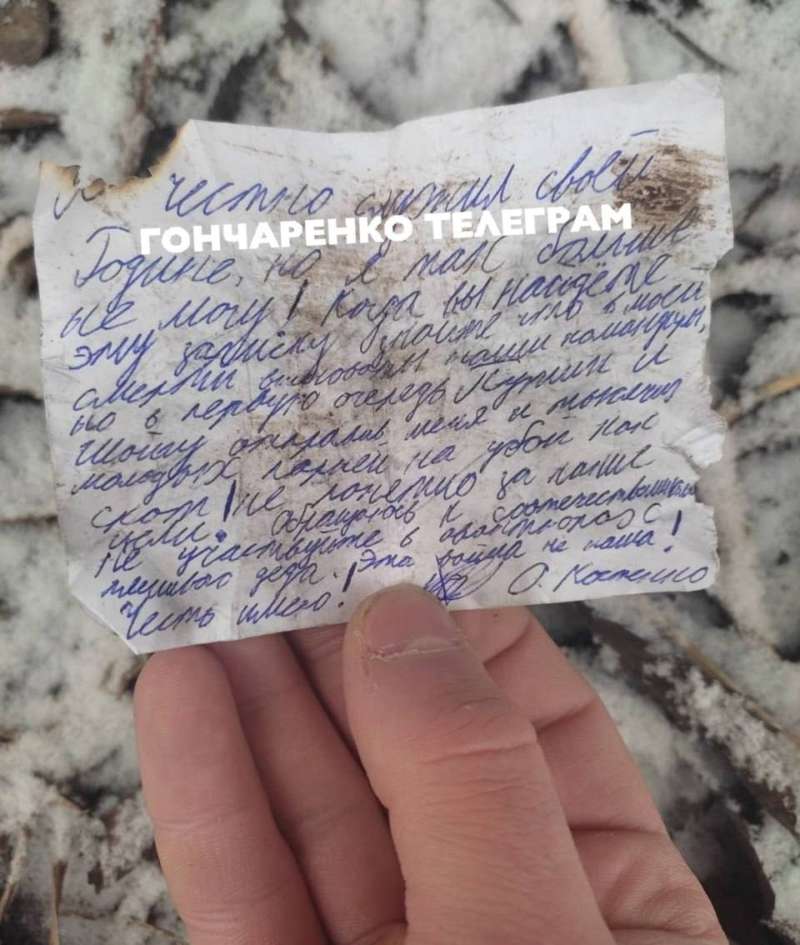 Я честно служил своей
ГОНЧАРЕНКО ТЕЛЕГРАМ
Родине, но я так больше
не могу! Когда вы найдёте
эту записку знайте что в моей
смерти виноваты наши командиры,
но в первую очередь Путин и
Шойгу отправив меня и тысячи
молодых парней на убой как
скот! не понятно за какие
цели. Обращаюсь к соотечественникам
не участвуйте в авантюрах с
деда. Эта война не наша!
Честь имею! О. Костенко